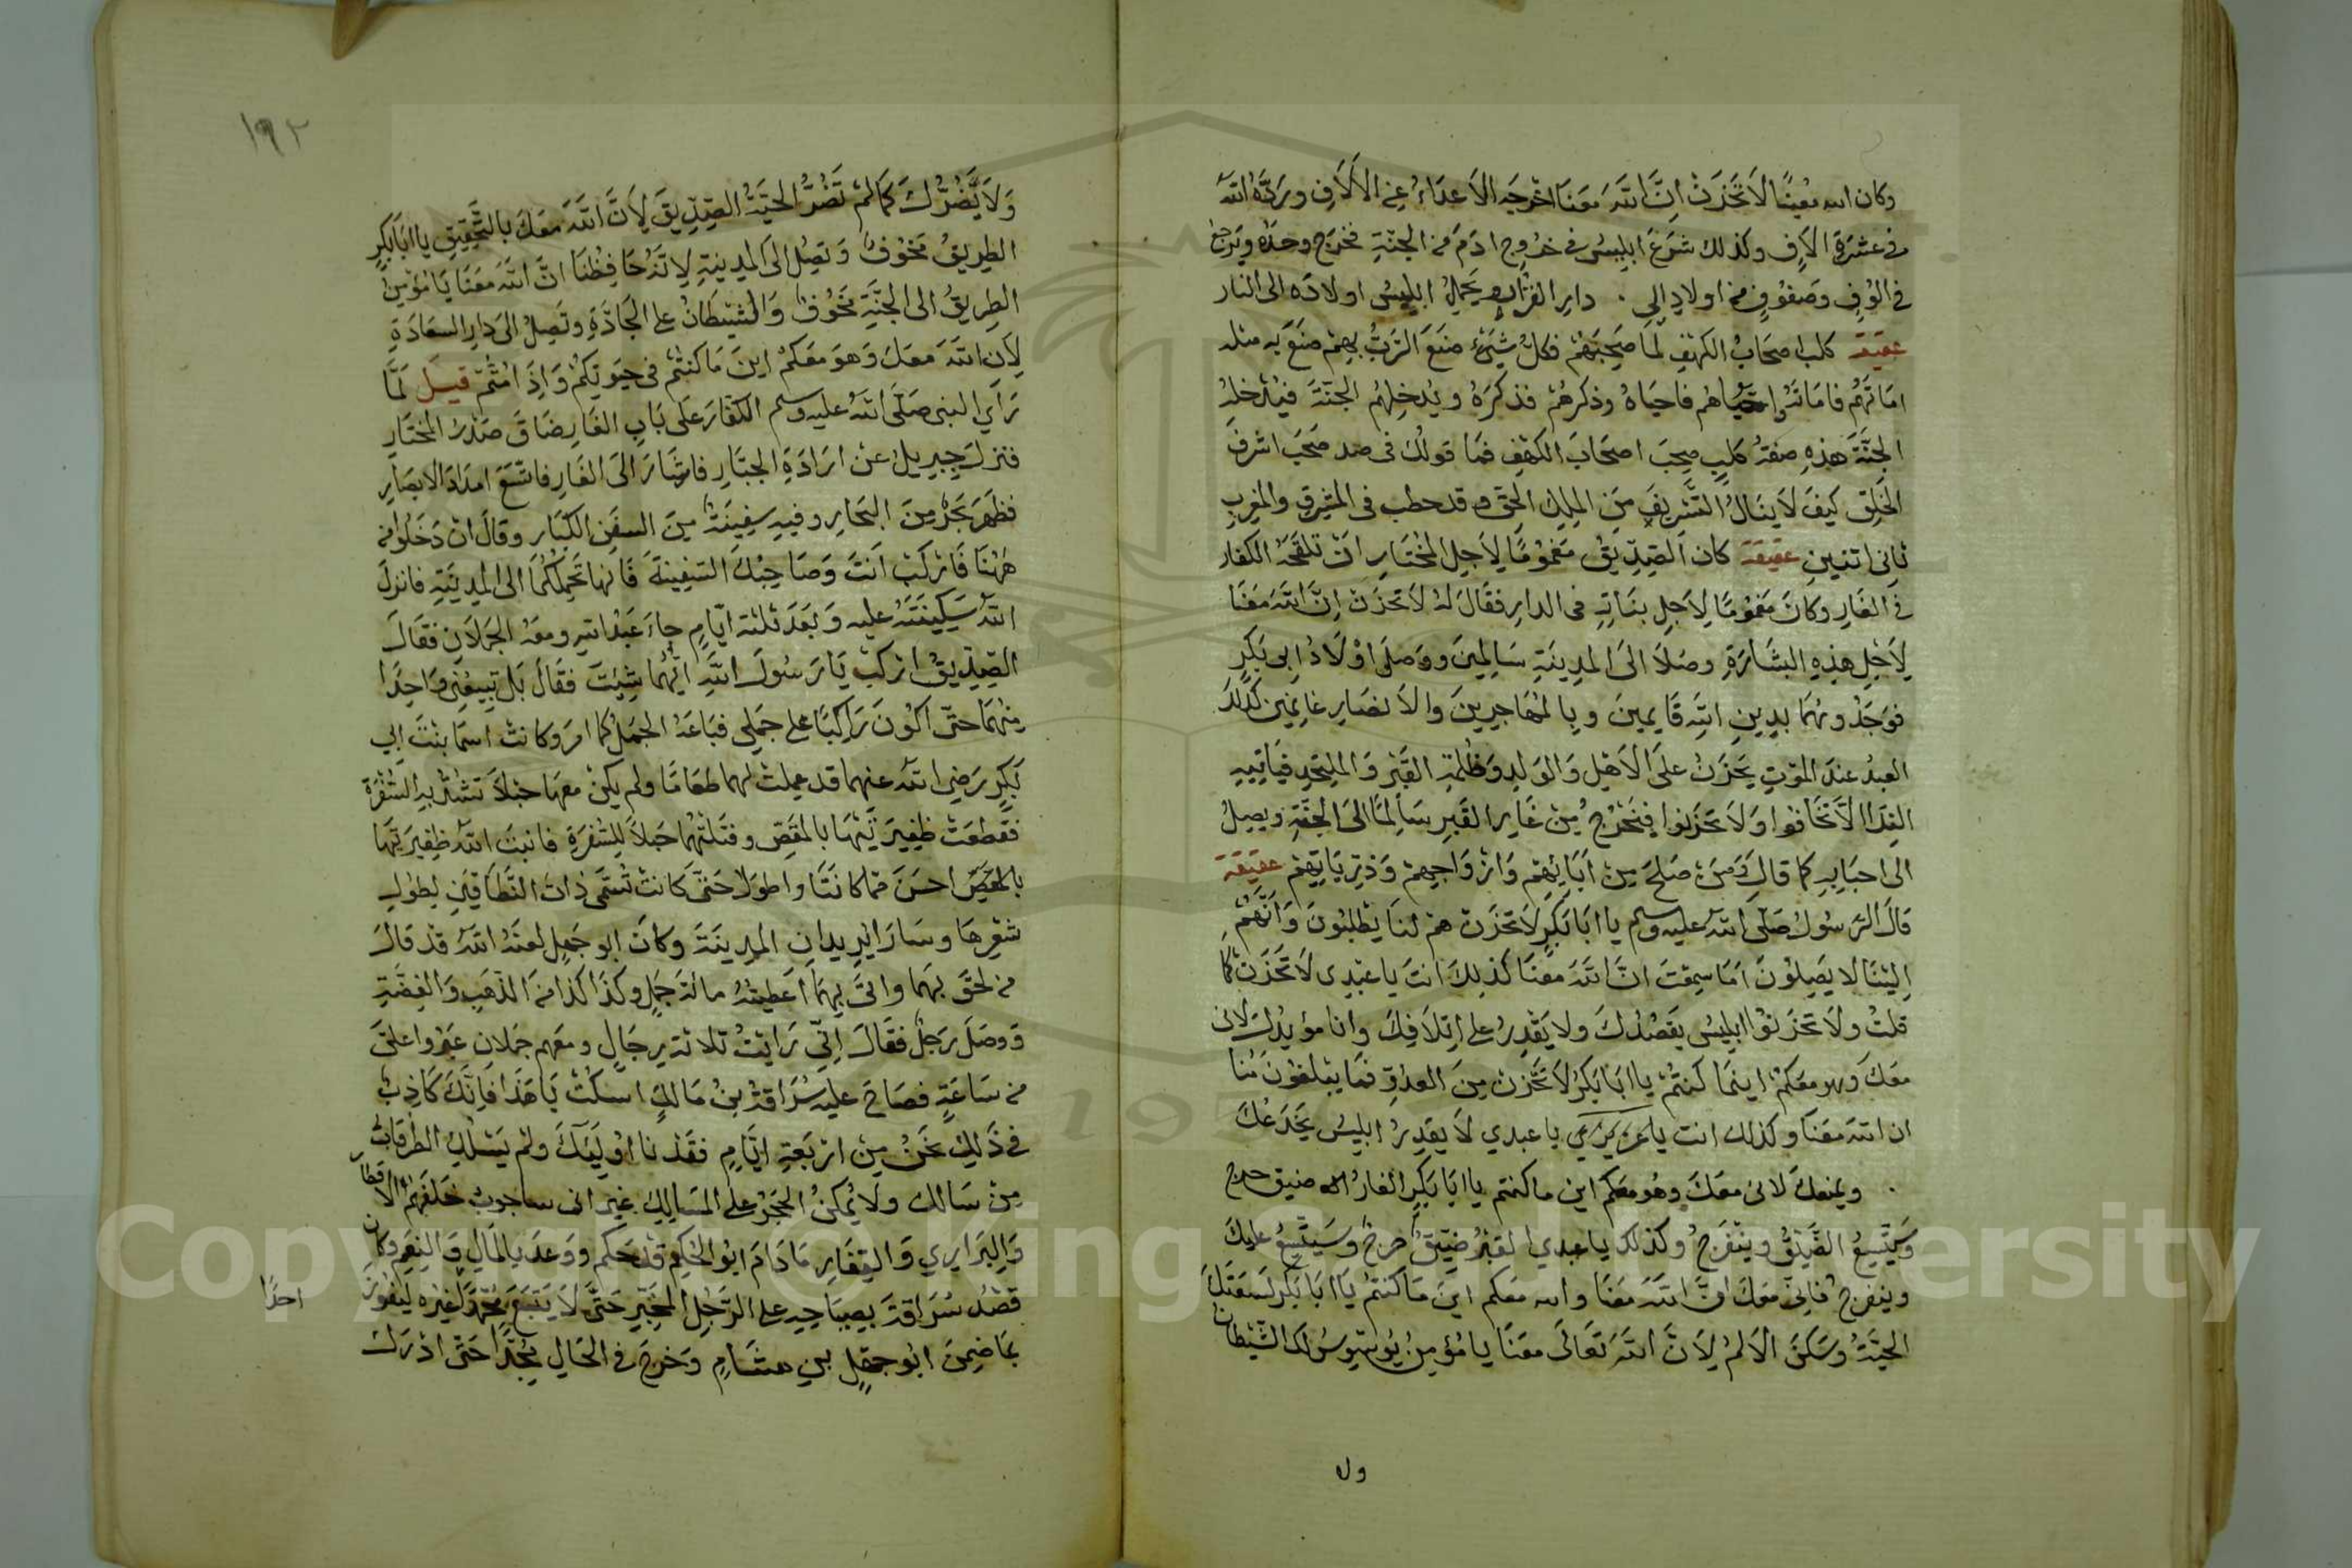 وكان الله معينًا لَا تَحْزَنْ اِنَّ اللّٰهَ مَعَنَا اخْرجَه الاَعدَاءُ فى الاَلَافِ ورَدَّهُ اللّٰه
فى عشرَةِ الاَفِ وكذلك شَرَعَ ابليسُ فى خرُوجِ ادَمَ من الجنّةِ فخرَج وحدَهُ ويَرجع
فى الُوفٍ وصَفوُفٍ من اولادِ الى دارِ القرار ويحمِلُ ابليسُ اولادَه الى النار
عقيقة كلب اصحَابُ الكهفِ لما صَحِبَهُمْ فكلُّ شَىْءٍ صَنَعَ الرَّبُّ بِهِمْ صَنَعَ بِه مثله
امَاتَهُم فامَاتَه احيَاهم فاحيَاهُ وذكرهُم فذكرَهُ ويُدخِلهُم الجنّةَ فيُدْخلهُ
الجنَّةَ هذِهِ صفةُ كلبٍ صحِبَ اصحَابَ الكهفِ فمَا قولكَ فى صحبَ اشرفَ
الخَلقِ كيفَ لَا ينَالُ التَّشريفَ مِنَ المِلكِ الحقِ وقد خطب فى المشرِقِ والمغربِ
ثانِى اثنينِ عقيقة كان الصِّدِّيقُ مَغمُومًا لِاَجلِ المُخْتَارِ اَنْ تلْقَحَهُ الكفار
فى الغَارِ وكانَ مَغمُومًا لِاَجلِ بنَاتِهِ فى الدارِ فقالَ لهُ لَا تَحْزَنْ اِنَّ اللّٰهَ مَعَنَا
لِاَجْلِ هذِهِ البشَارَةِ وصَلاَ الى المدِينَةِ سَالِمينَ ووَصلَ اوْلَادُ ابى بَكرٍ
فوَجَدُوهُمَا بدِينِ اللّٰهِ قَايمينَ وبِالمُهَاجِرينَ والاَنصَارِ غانِمينَ كَذلكَ
العبدُ عندَ الموْتِ يَحْزَنُ علىَ الاَهلِ وَالولدِ وظُلمةِ القبْرِ وَاللحَدِ فيَاتِيهِ
النِدَا الَّا تَخَافوا وَلَا تَحْزَنوا فيَخْرُجُ مِنْ غَارِ القَبرِ سَالِمًا الىَ الجَنَّةِ ويصِلُ
الى احبَابِهِ كما قالَ وَمَنْ صَلَحَ مِنْ اَبَائِهِمْ وَازْوَاجِهِمْ وَذرِّيَاتِهِمْ عقيقة
قالَ الرَّسُولُ صَلّى اللّٰه عليه وسلم يا ابَا بَكرٍ لَا تَحْزَنْ هم لنَا يَطْلبُونَ وَاَنَّهُمْ
اِليْنَا لَا يَصِلوُنَ اَمَا سمِعْتَ انَّ اللّٰهَ مَعَنَا كذلِكَ انتَ يا عَبْدِى لَا تَحْزَنْ كما
قلتُ ولَا تَحْزَنوُا ابليسُ يقصُدُكَ ولَا يَقْدِرُ على اتِلَافِكَ وانا مؤيدُكَ لانى
معَكَ وهو معَكمْ اينما كُنتُمْ يا ابَا بَكرْ لَا تَحْزَنْ مِنَ العدُوّ فمَا يبْلغوُنَ مُنا
ان اللّٰه مَعَنَا وكذلك انت يا عَبدي لَا يَقدِرُ ابليس يَخدَعُكَ
ويمنعك لانى معَكَ وهُو معَكم اين ما كنتم يا ابَا بَكرٍ الغارُ ضيق حرج
وَسَيتَّسِعُ الضَّيْقُ وينْفَرجُ وكذلك يا عبدي القبرُ ضيّقٌ حرجٌ وسَيَتَّسِعُ عليكَ
وينفرجُ فانِىّ معَكَ انَّ اللّٰهَ مَعَنَا والله معَكم اينَ مَا كنتمْ يا ابَا بَكرْ لسَعَتَكَ
الحيَّةُ وَسَكنَ الاَلمُ لِاَنَّ اللّٰهَ تَعَالىَ معَنَا يا مُؤمِنُ يُوَسْوِسُ لكَ الشَّيْطان
ولا
١٩٢
وَلَا يَضُرُّكَ كمَا لمْ تَضُرَّ الحيَّةُ الصِّدِّيقَ لِاَنَّ اللّٰهَ مَعَكَ بالتَّحقيقِ يا ابَا بَكرٍ
الطريقُ مَخوُفٌ وَتصِلُ الىَ المدِينةِ لِانَهُ حَافِظنَا انَّ اللّٰهَ مَعَنَا يَا مُؤمِن
الطريقُ الى الجنَّةِ مَخوُفٌ وَالشيْطانُ على الجَادَّةِ وتَصِلُ الىَ دارِ السعَادَةِ
لِاَن اللّٰهَ معَكَ وَهوَ معَكمُ اينَ مَا كنتُم فى حيَوتِكمْ وَاِذَ امُتُّمْ قيل لمَّا
رَاَى النبى صَلّى اللّٰه عليه وسلم الكفّارَ علَى بَابِ الغَارِ ضَاقَ صَدْرُ المختَارِ
فنزلَ جِبريلُ عنْ ارَادَةِ الجبّارِ فاشَارَ الىَ الغَارِ فاتّسَعَ امدَادَ الابصَارِ
فظهَرَ بَحْرٌ مِنَ البحَارِ وفيهِ سفِينَةٌ مِنَ السفُنِ الكبَارِ وقالَ انْ دَخَلُوا من
هَهُنَا فَارْكَبْ اَنتَ وَصَاحِبُكَ السَّفِينةَ فَانها تَحمِلكُمَا الى المدِينَةِ فانزلَ
اللّٰهُ سَكِينَتَهُ عليه وَبَعْدَ ثلثة ايّامٍ جاءَ عَبْدُ اللهِ ومعَهُ الجمَلَانِ فقَالَ
الصِّدِّيقُ اركبْ يَا رَسُولَ اللّٰهِ ايَّهُمَا شِئتَ فقَالَ بَل تَبِيعُنى وَاحِدًا
مِنهُمَا حتّى اكُونَ رَاكِبًا على جَمَلِى فبَاعَهُ الجمَلَ كما امرَ وكانتْ اسمَا بنْتَ ابي
بَكرٍ رَضِىَ اللّٰه عنهما قد عملتْ لهما طعَامًا ولم يكنْ معهَا حبْلاً تشُدُّ بِه السُّفْرَة
فقطعَتْ ظفِيرَتَيْهَا بالمقَصِ وفتَلتْهُما حَبلاً لِلسُّفرَةِ فانبتَ اللّٰه ظفِيرَتَهَا
بالمقَصّ احسَنَ ممّا كانَتَا واطوَلاَ حَتّى كانتْ تُسَمَّى ذاتَ النِّطَاقينِ لِطولِ
شعْرِهَا وسَارَا يُريدانِ المدِينَةَ وكانَ ابو جَهلٍ لعنَهُ اللّٰهُ قدْ قالَ
من لحقَ بهِمَا واتى بهِمَا اَعطيتُهُ مائةَ جَمَلٍ وكذَا كذا من الذّهَبِ وَالفِضَّةِ
وَوصَلَ رَجُلٌ فقَالَ اِنّى رَايْتُ ثلاثةَ رجَالٍ ومعَهم جمَلانِ عبَرُوا علىَّ
من سَاعَةٍ فصَاحَ عليهِ سُرَاقةُ بنُ مَالكٍ اسكُتْ يَا هَذَا فَاِنَّكَ كَاذِبٌ
فى ذَلِكَ نَحْنُ مِنْ ارْبَعةِ ايَّامٍ فقَدْنا اوْليَكَ ولمْ يَسْلكِ الطرقات
مِنْ سَالك ولَا يُمكنُ الحَجْرُ على المسَالِكِ غير انى ساجوب خَلفَهُم الاقطار
وَالبرَاري وَالقِفَارِ مَا دَامَ ابُو الحكِم قدْ حَكم ووَعدَ بالمَالِ وَالنِعَمِ وكان
قصْدُ سُرَاقةَ بصِيَاحِهِ على الرَّجُلِ المُخْبرِ حَتَّى لَا يَتبَعَ محمّدًا غيْره ليَفُوزَ
احدًا
بمَا ضمِنَ ابُو جهْلٍ بنِ هشَامٍ وَخرجَ فى الحَالِ مُجِدًّا حَتّى ادْرَكَ